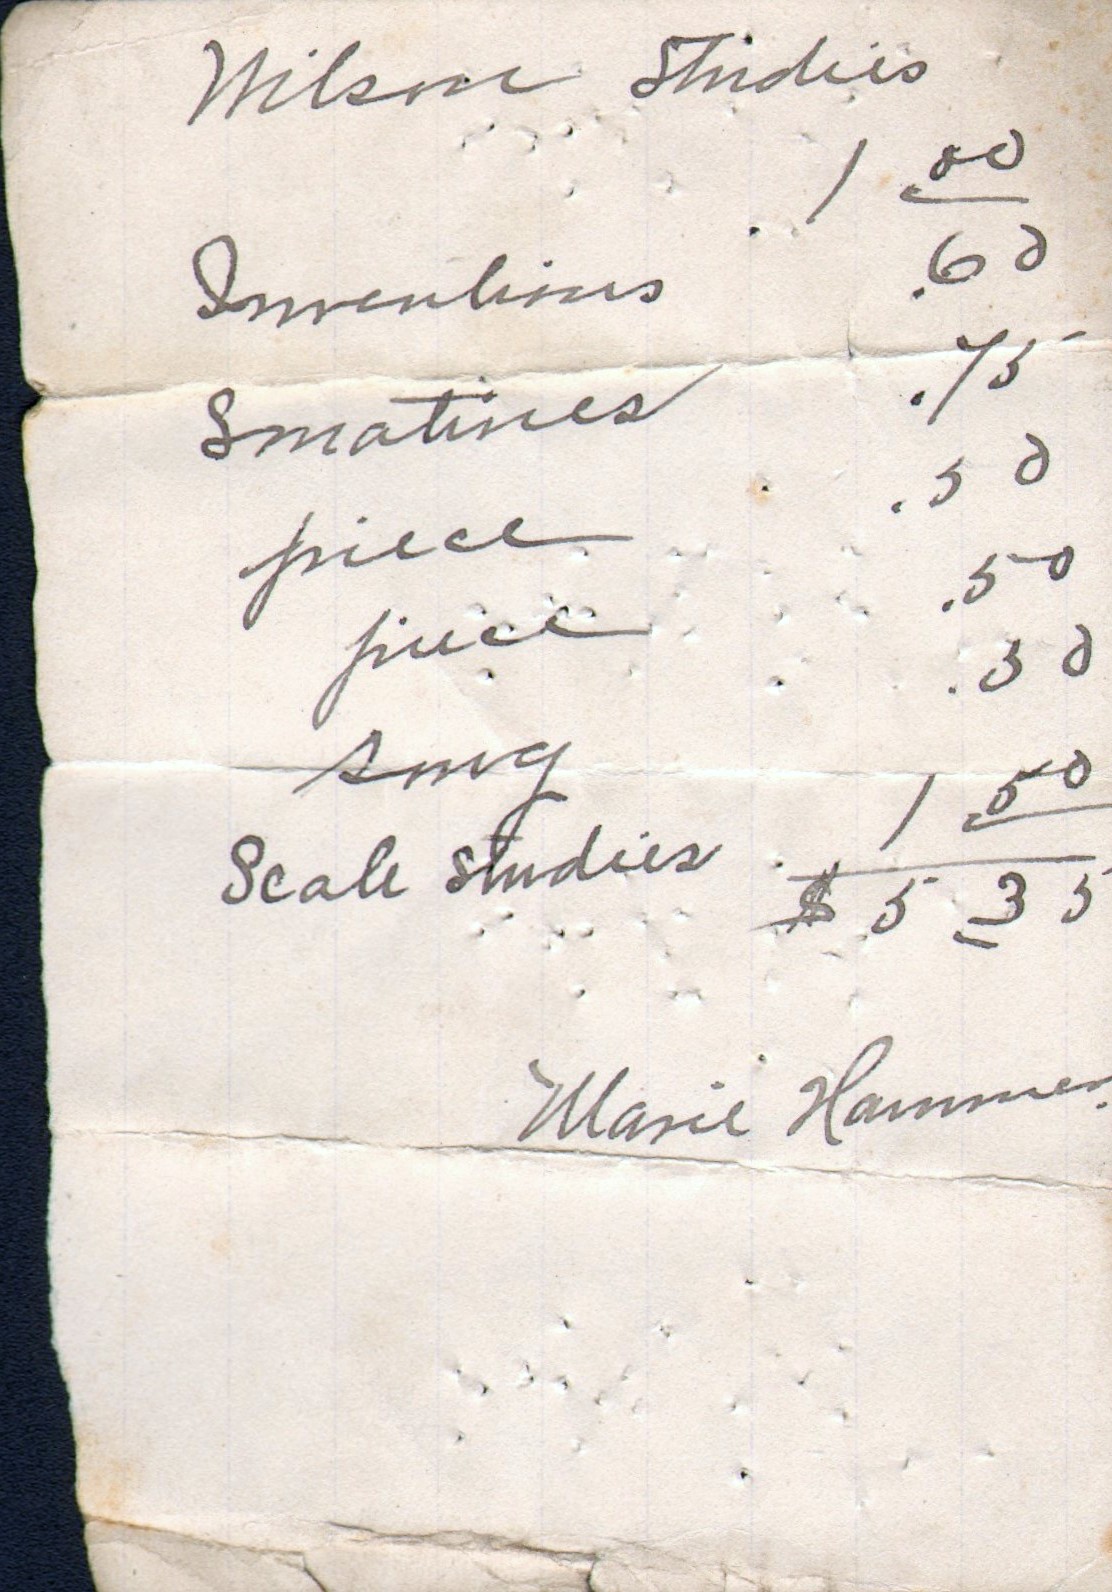 Wilson Studies
1 00
Inventions .60
Sonatines .75
piece .50
piece .50
song .50
Scale Studies 1 50
$ 5 35
Marie Hammer